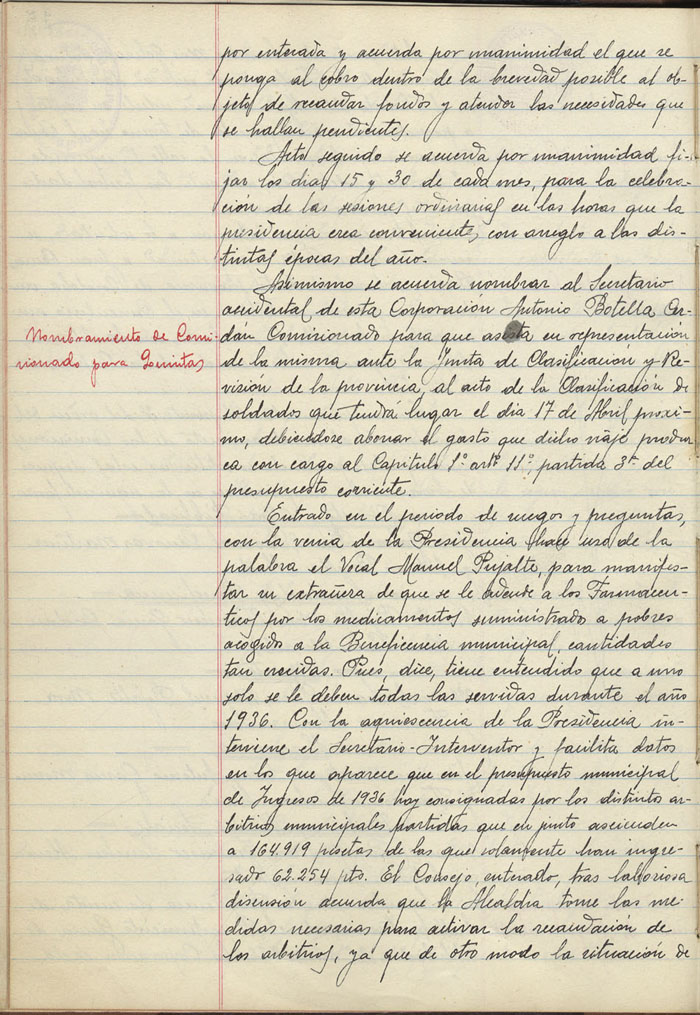 por enterada y acuerda por unanimidad el que se
ponga al cobro dentro de la brevedad posible al ob-
jeto de recaudar fondos y atender las necesidades que
se hallan pendientes.
Acto seguido se acuerda por unanimidad fi-
jar los dias 15 y 30 de cada mes, para la celebra-
ción de las sesiones ordinarias en las horas que la
presidencia crea conveniente, con arreglo a las dis-
tintas épocas del año.
Asimismo se acuerda nombrar al Secretario
accidental de esta Corporación Antonio Botella Cer-
dán Comisionado para que asista en representación
Nombramiento de Comi-
sionado para Quintas
de la misma ante la Junta de Clasificación y Re-
visión de la provincia, al acto de la Clasificación de
soldados que tendrá lugar el dia 17 de Abril próxi-
mo, debiendose abonar el gasto que dicho viaje produz
ca con cargo al Capitulo 1º artº 11º partida 3ª del
presupuesto corriente.
Entrado en el periodo de ruegos y preguntas,
con la venia de la Presidencia hace uso de la
palabra el Vocal Manuel Pujalte, para manifes-
tar su extrañeza de que se le adeude a los Farmaceu-
ticos por los medicamentos suministrados a pobres
acogidos a la Beneficencia municipal, cantidades
tan crecidas. Pues, dice, tiene entendido que a uno
solo se le deben todas las servidas durante el año
1936. Con la aquiescencia de la Presidencia in-
terviene el Secretario-Interventor y facilita datos
en los que aparece que en el presupuesto municipal
de Ingresos de 1936 hay consignadas por los distintos ar-
bitrios municipales partidas que en junto ascienden
a 164.919 pesetas de las que solamente han ingre-
sado 62.254 pts. El Consejo, enterado, tras laboriosa
discusión acuerda que la Alcaldia tome las me-
didas necesarias para activar la recaudación de
los arbitrios, ya que de otro modo la situación de